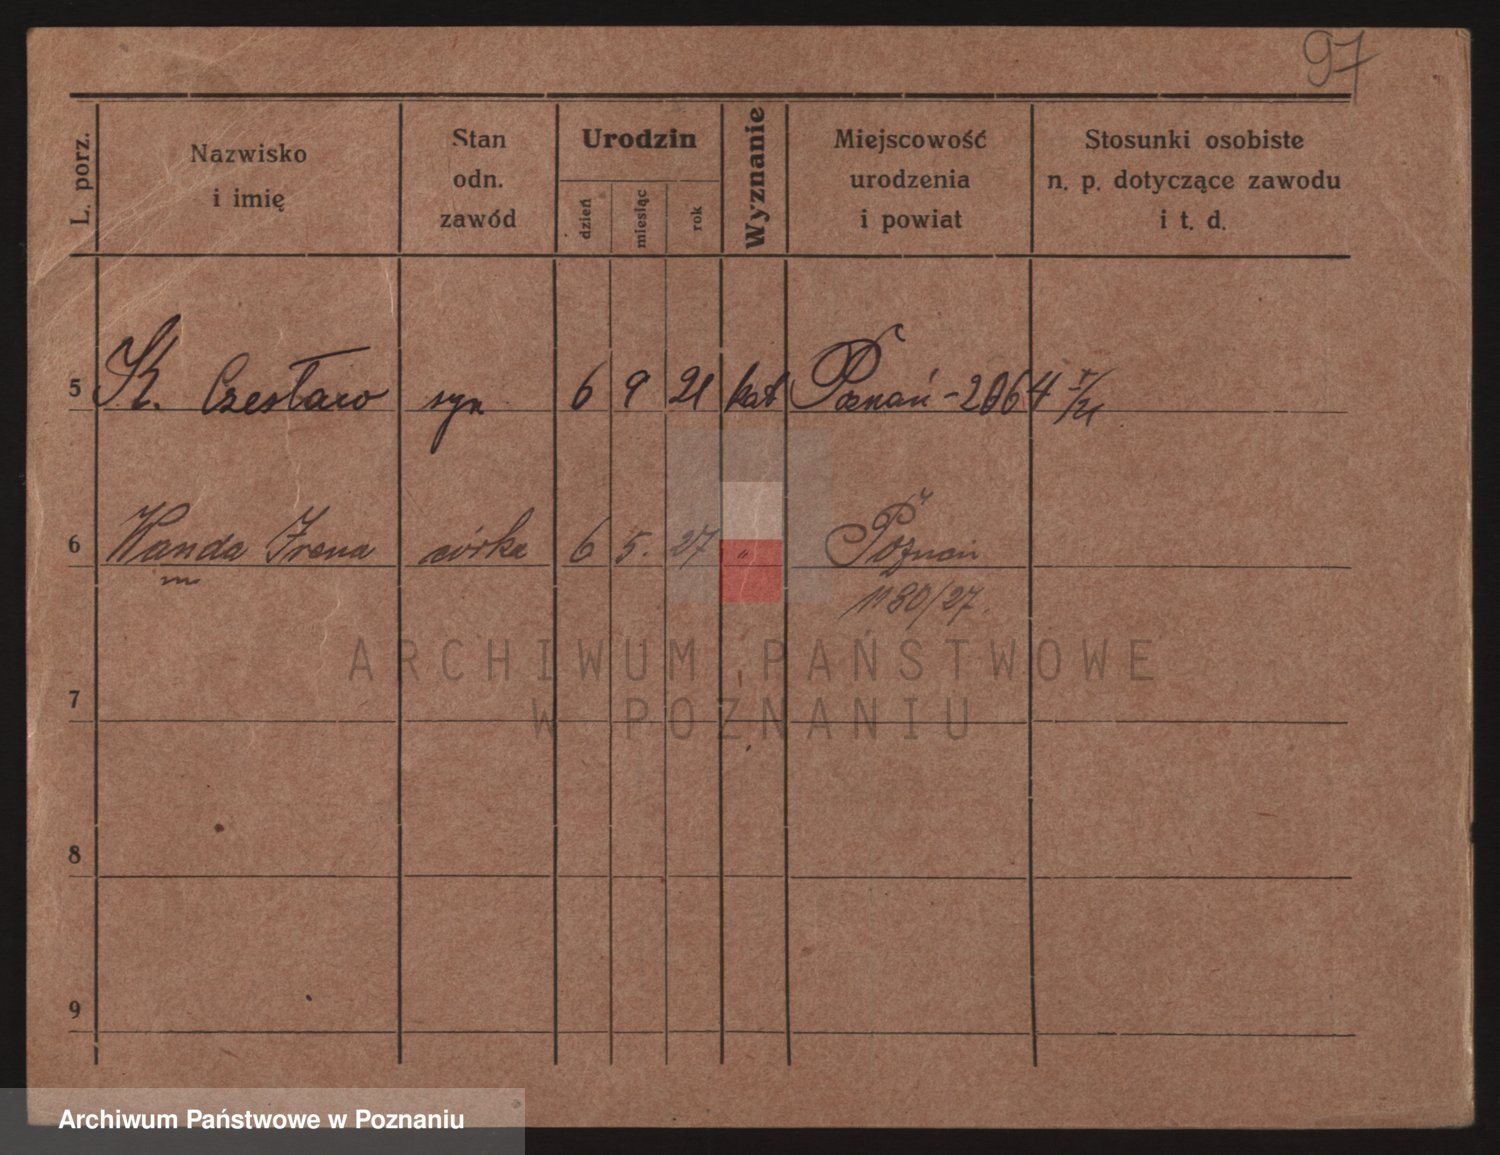 97
L. porz.
Nazwisko
i imię
Stan
odn.
zawód
Urodzin
dzień
miesiąc
rok
Wyznanie
Miejscowość
urodzenia
i powiat
Stosunki osobiste
n. p. dotyczące zawodu
i t. d.
5 K. Czesław syn 6 9 21 kat Poznań - 2064 V/21
6 Wanda Irena córka 6 5. 27 " Poznań
1180/27.
ARCHIWUM PAŃSTWOWE
W POZNANIU
7
8
9
Archiwum Państwowe w Poznaniu